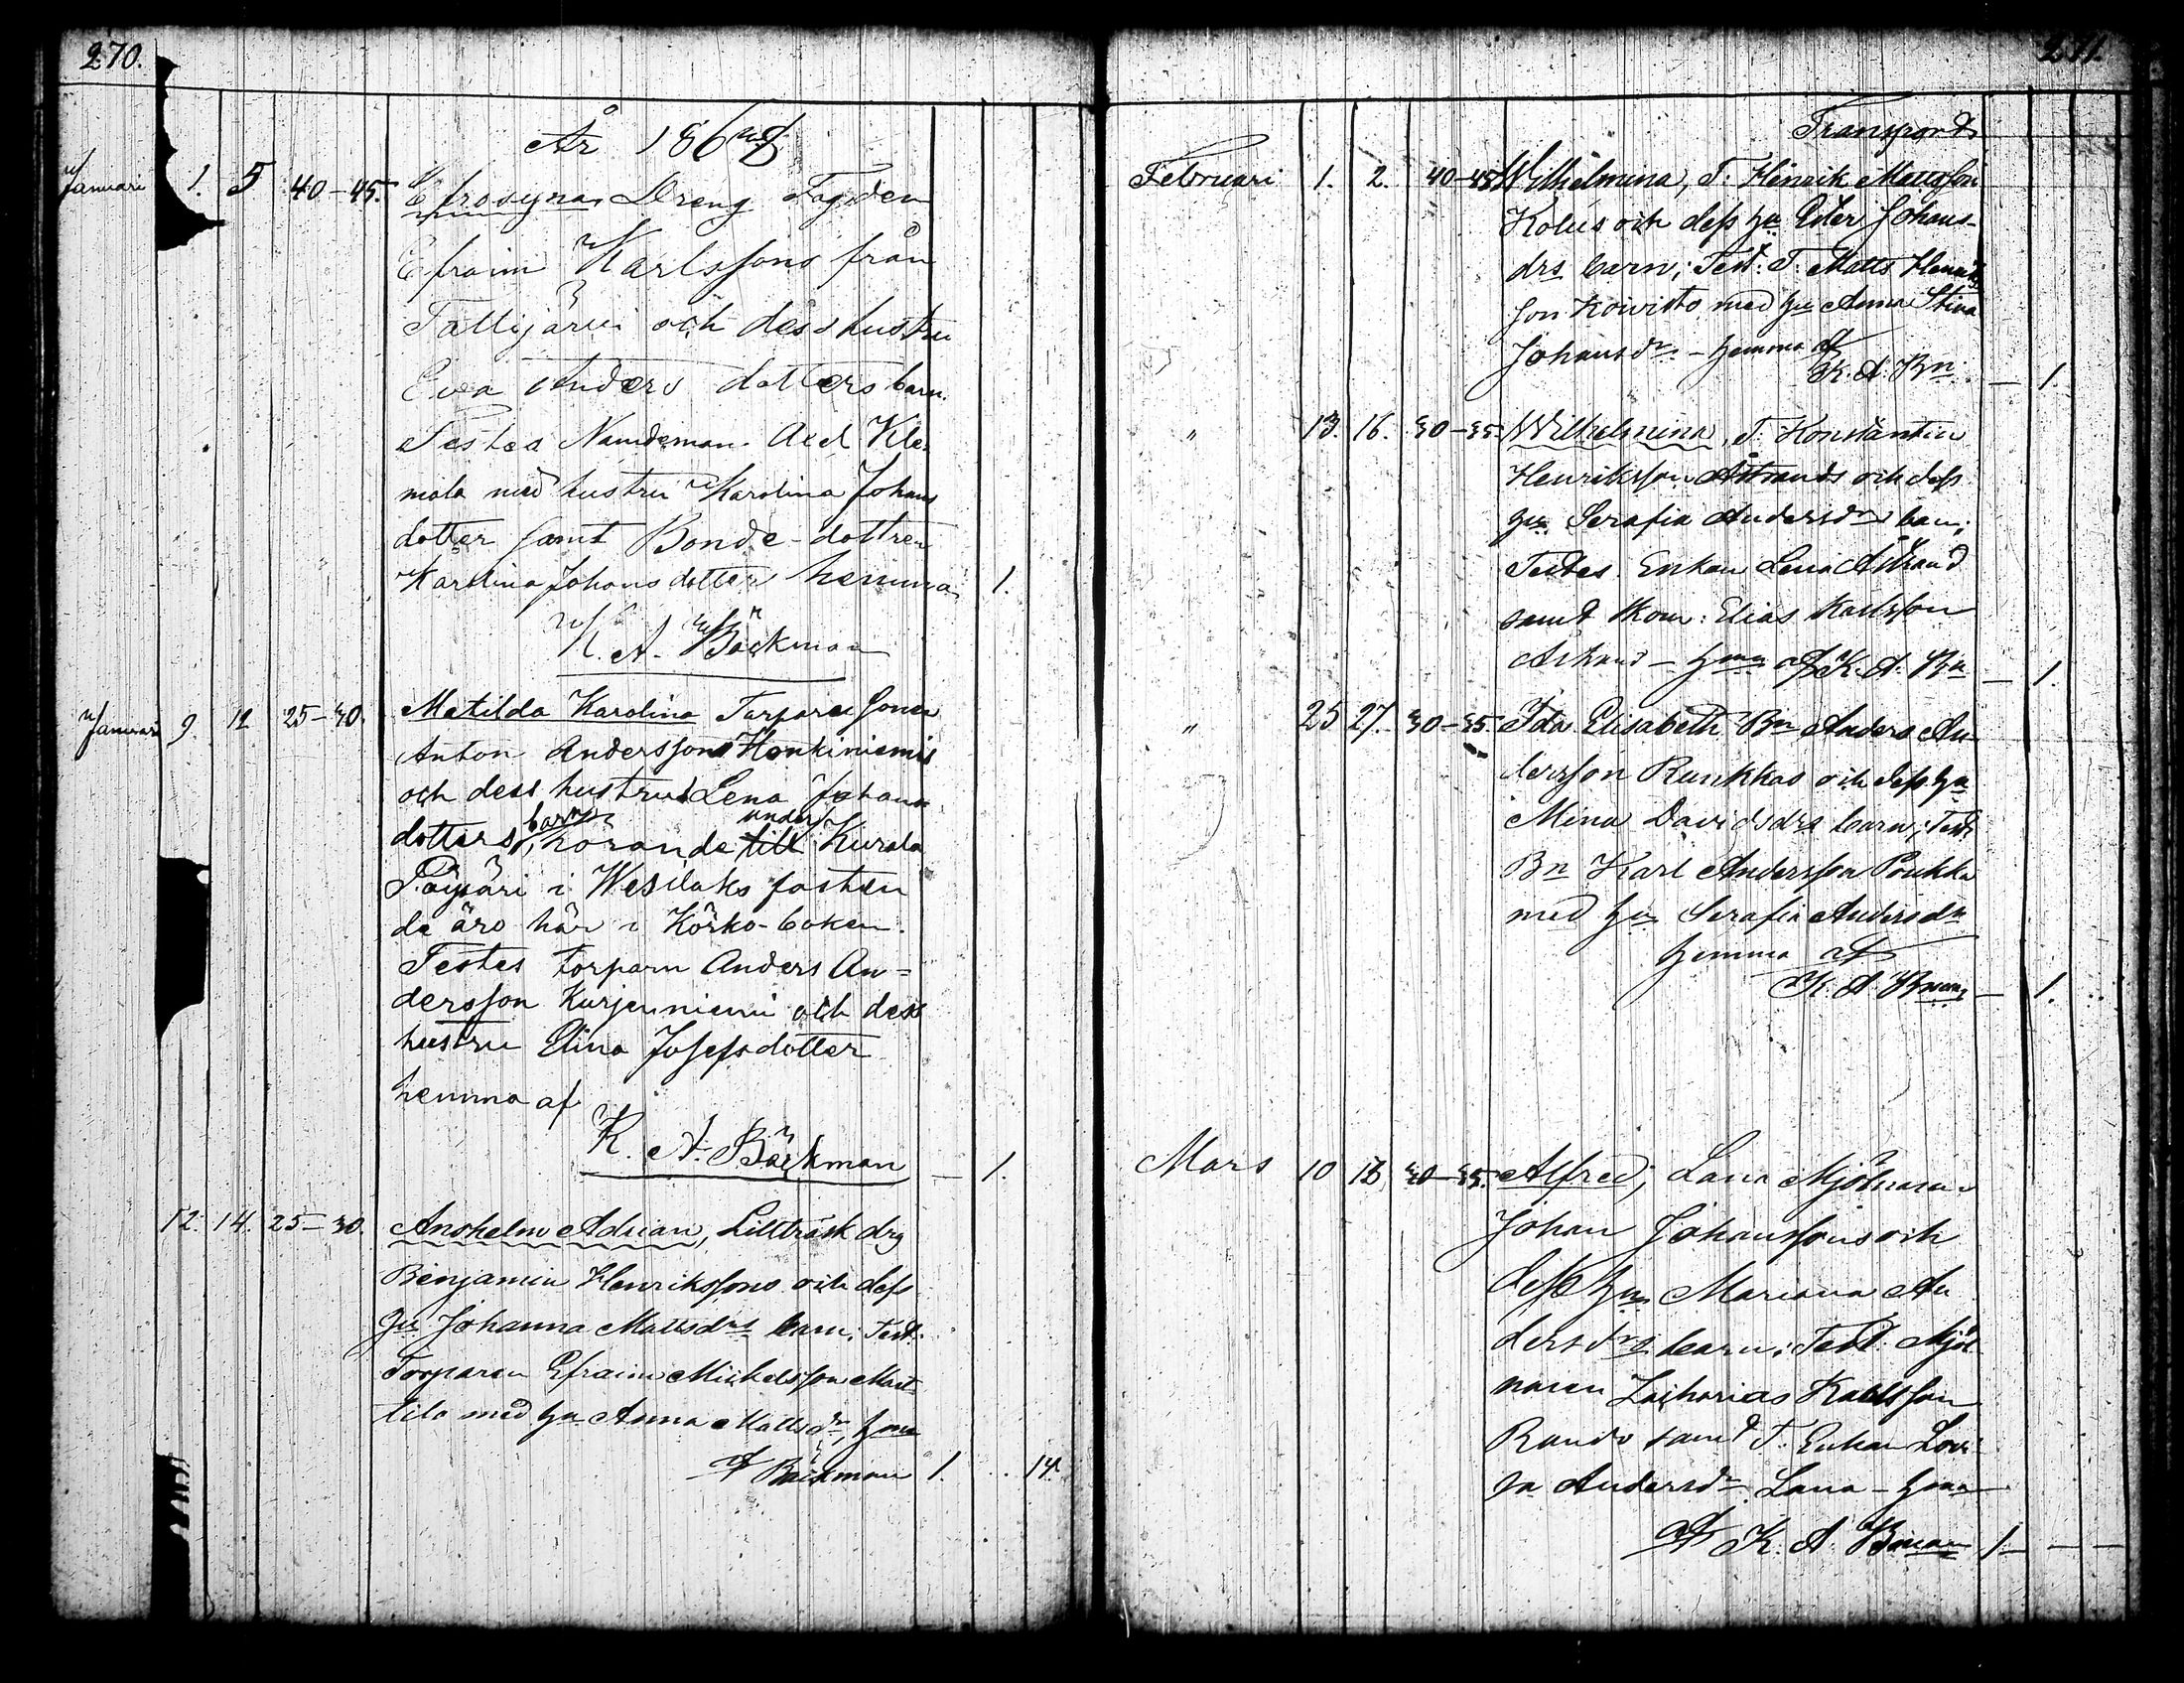 270.
År 1868
Januari 1. 5 40-45. Efrosyna, Dreng Fogden
Efraim Karlssons från
Tallijärvi och dess hustru
Eva Anders dotters barn.
Testes Nämdeman Axel Kle-
mola med hustru Karolina Johans
dotter samt Bonde-dottren
Karolina Johans dotter hemma 1.
K. A. Bäckman
Januari 9. 12 25-30. Matilda Karolina Torpare Sonen
Anton Anderssons Honkiniemis
och dess hustrus Lena Johans
barn under
dotters, hörande till Kurala
i Wesilaks fastän
de äro här i Körko-boken.
Testes torparn Anders An=
dersson Kurjenniemi och dess
hustru Elina Josefsdotter
hemma af
K. A. Bäckman — 1.
12. 14. 25-30. Anshelm Adrian, Lillträsk drg
Benjamin Henrikssons och dess
hu Johanna Mattsdrs barn; Test.
Torparen Efraim Michelsson Mart-
tila med hu Anna Mattsdr, hma
af Bäckman 1. 14.
271.
Transport
Februari 1. 2. 40-45 Wilhelmina, T. Henrik Mattsson
Kolus och dess hu Ester Johans-
drs barn; Test: T. Matts Henriks
son Koivisto med hu Anna Stina
Johansdr. - hemma af
K. A. Bn. — 1.
" 13. 16. 30-35. Wilhelmina, T. Konstantin
Henriksson Åstrands och dess
hu Serafia Andersdrs barn;
Testes. Enkan Lena Åstrand
samt Kom: Elias Karlsson
Åstrand - hma af K. A. Bn — 1.
" 25 27. 30-35. Ida Elisabeth Bn Anders An-
dersson Runkkas och dess hu
Mina Davidsdrs barn; Test:
Bn Karl Andersson Poukka
med hu Serafia Andersdr
hemma af
K. A. Bman — 1.
Mars 10 13 30-35. Alfred, Lana Mjölnaren
Johan Johanssons och
dess hu Mariana An
dersdrs barn; Test. Mjöl
naren Zacharias Kallsson
Rando samt T. Enkan Lovi
sa Andersdr. Lana - hma
af K. A. Bman 1 — —